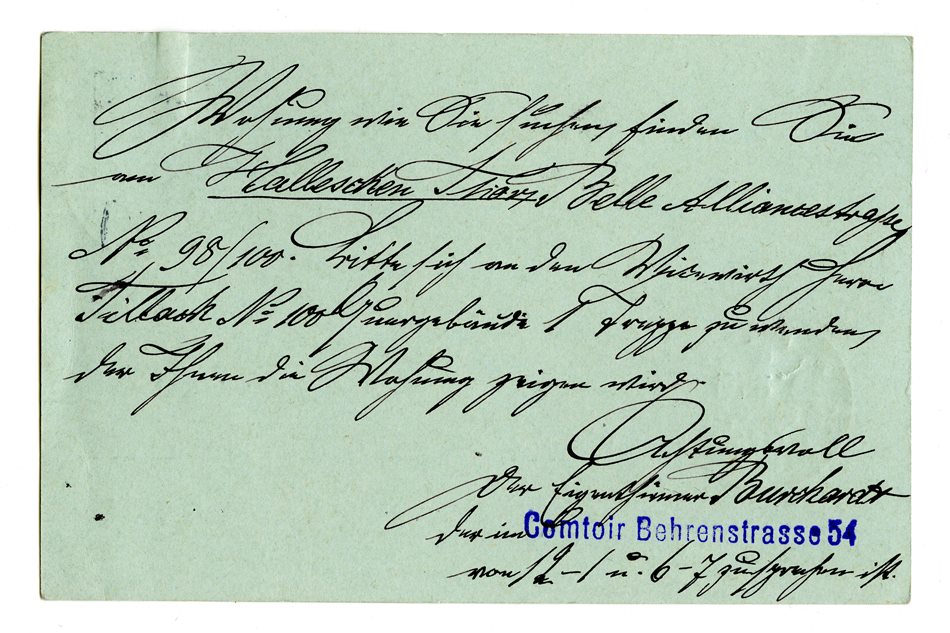 Wohnung wie Sie suchen, finden Sie
am Halleschen Thor, Belle Alliancestrasse
No 98/100. Bitte sich an den Vicewirth Herrn
Tilback No 100 Quergebäude 1 Treppe zu wenden,
der Ihnen die Wohnung zeigen wird.
Achtungsvoll
Der Eigenthümer Burchardt
der im Comtoir Behrenstrasse 54
von 12-1 u. 6-7 zu sprechen ist.